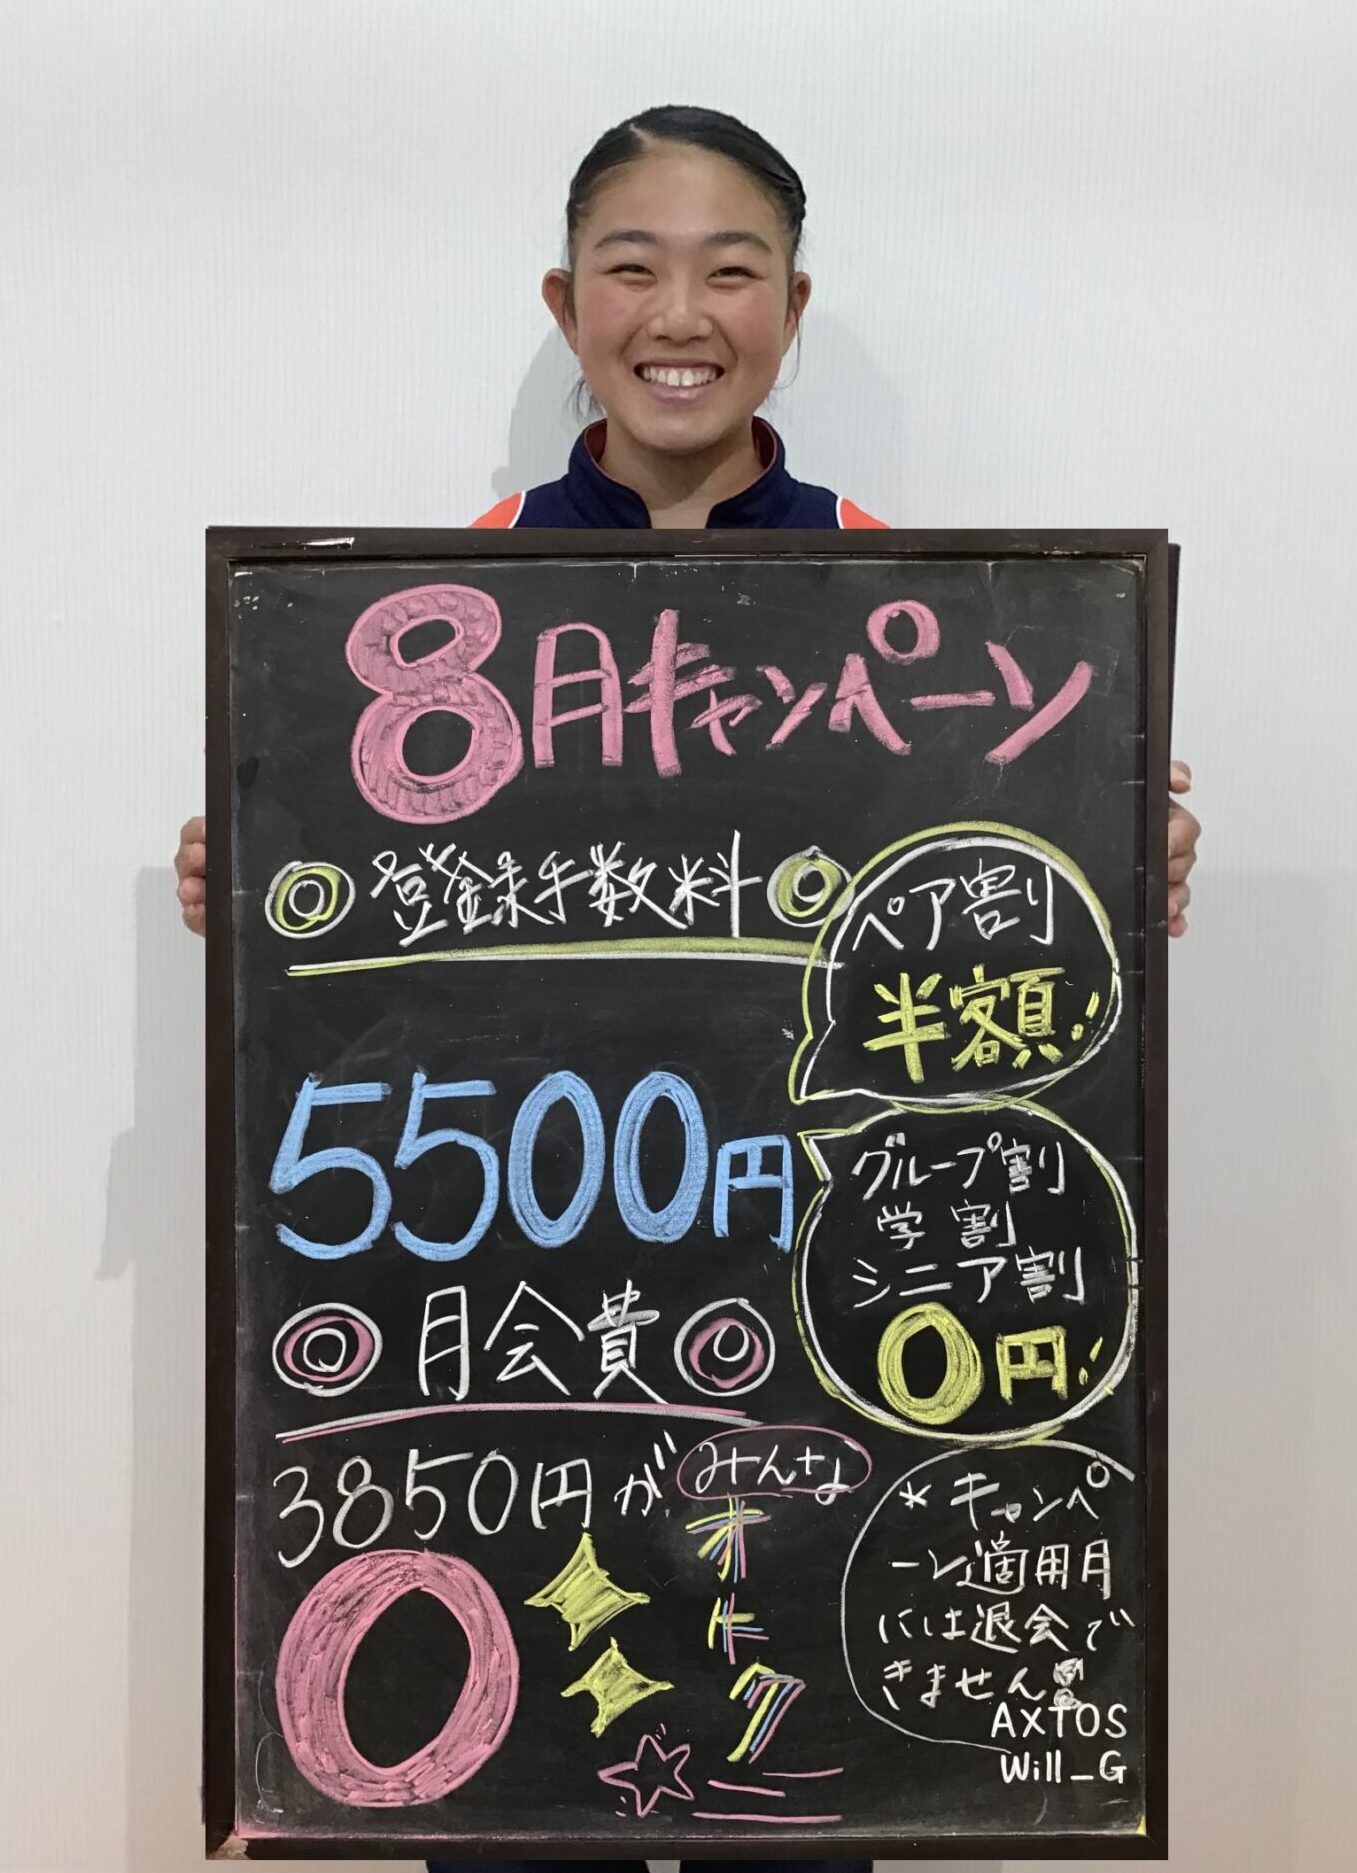 8月キャンペーン
◎登録手数料◎
ペア割
半額!
5500円
グループ割
学割
シニア割
0円!
◎月会費◎
3850円が
0
みんな
オトク
*キャンペ
ーン適用月
には退会で
きません
AXTOS
Will_G